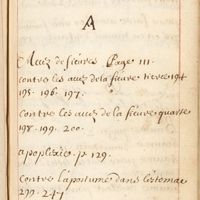 A
Auez de fieures Page 111.
contre les auez de la fieure tierce 194
195. 196. 197.
Contre les auez de la fieure quarte
198. 199. 200.
apoplexie. p. 129.
Contre l'apostume dans l'estomac